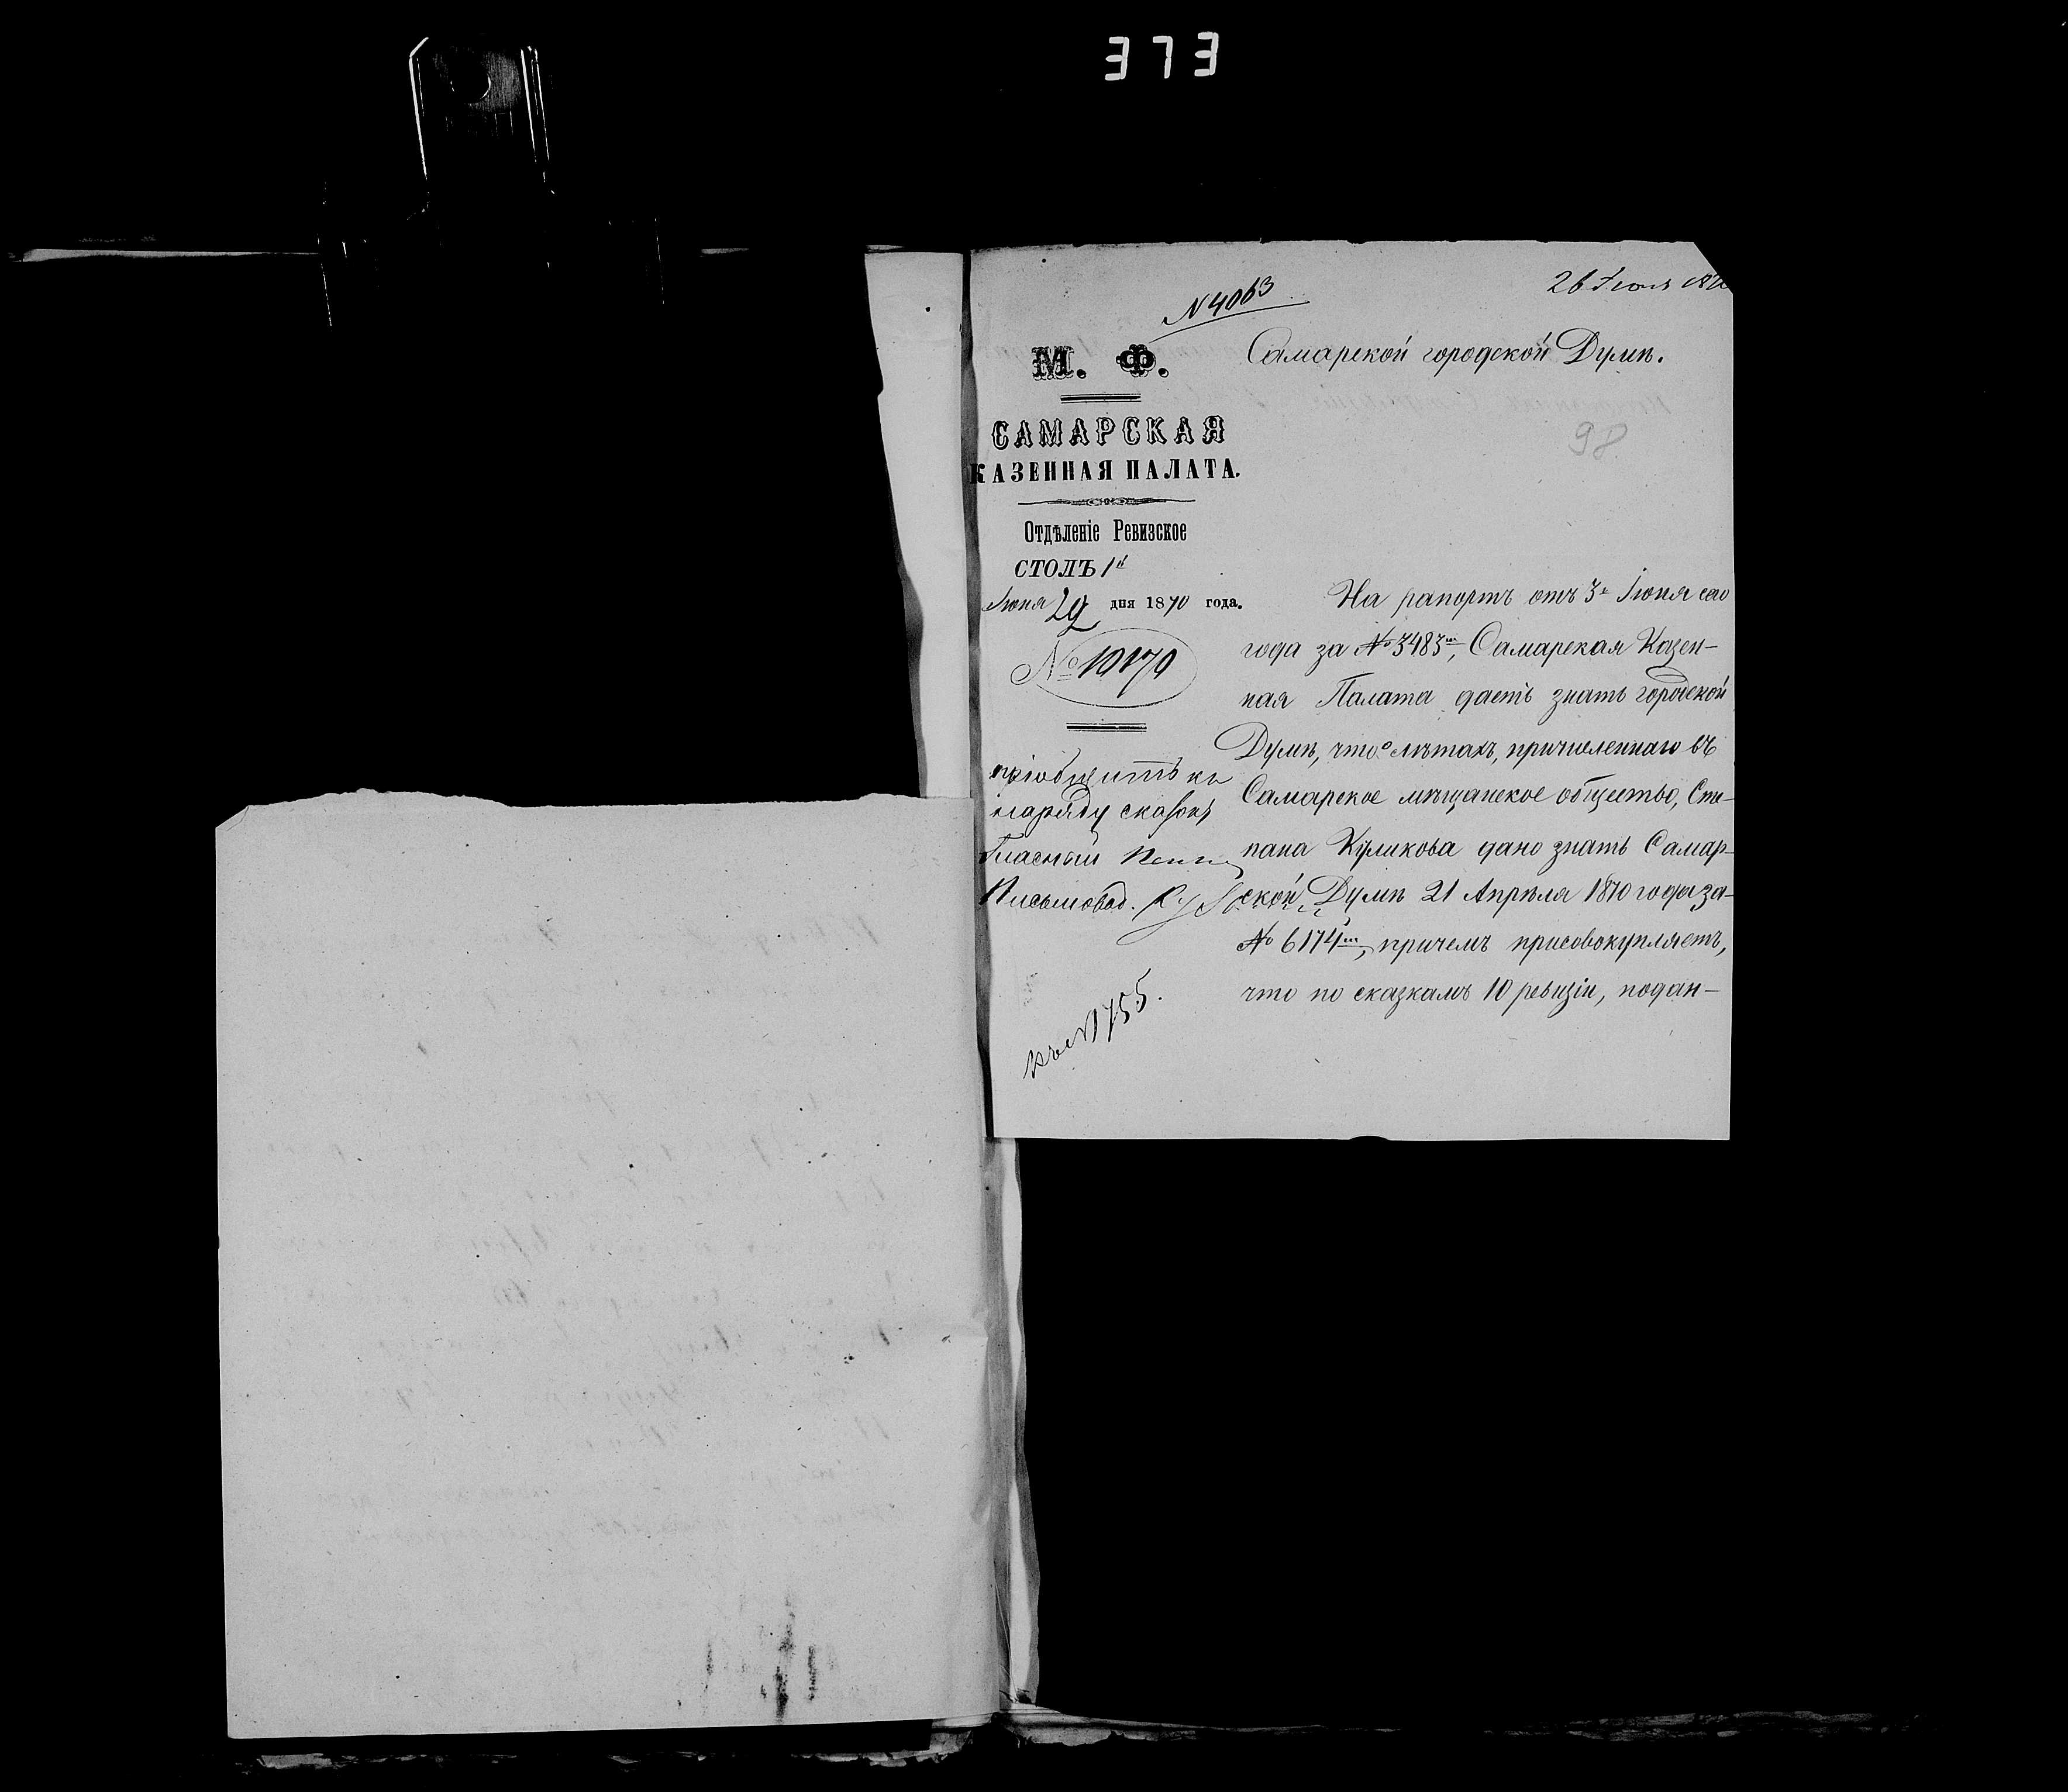 373
N 4063
26 Іюля 1870
М. Ф.
САМАРСКАЯ
КАЗЕННАЯ ПАЛАТА.
Отдѣленіе Ревизское
СТОЛЪ 1й
Іюня 29 дня 1870 года.
№ 10170
пріобщить къ
наряду сказокъ
Гласный
Письмовод.
къ N 755.
Самарской городской Думѣ.
98
На рапортъ отъ 3го Іюня сего
года за № 3483м, Самарская Казен-
ная Палата даетъ знать городской
Думѣ, что о лѣтахъ, причисленнаго въ
Самарское мѣщанское общество, Сте-
пана Куликова дано знать Самар-
ской Думѣ 21 Апрѣля 1870 года за
№ 6174м, причемъ присовокупляетъ,
что по сказкамъ 10 ревизіи, подан-